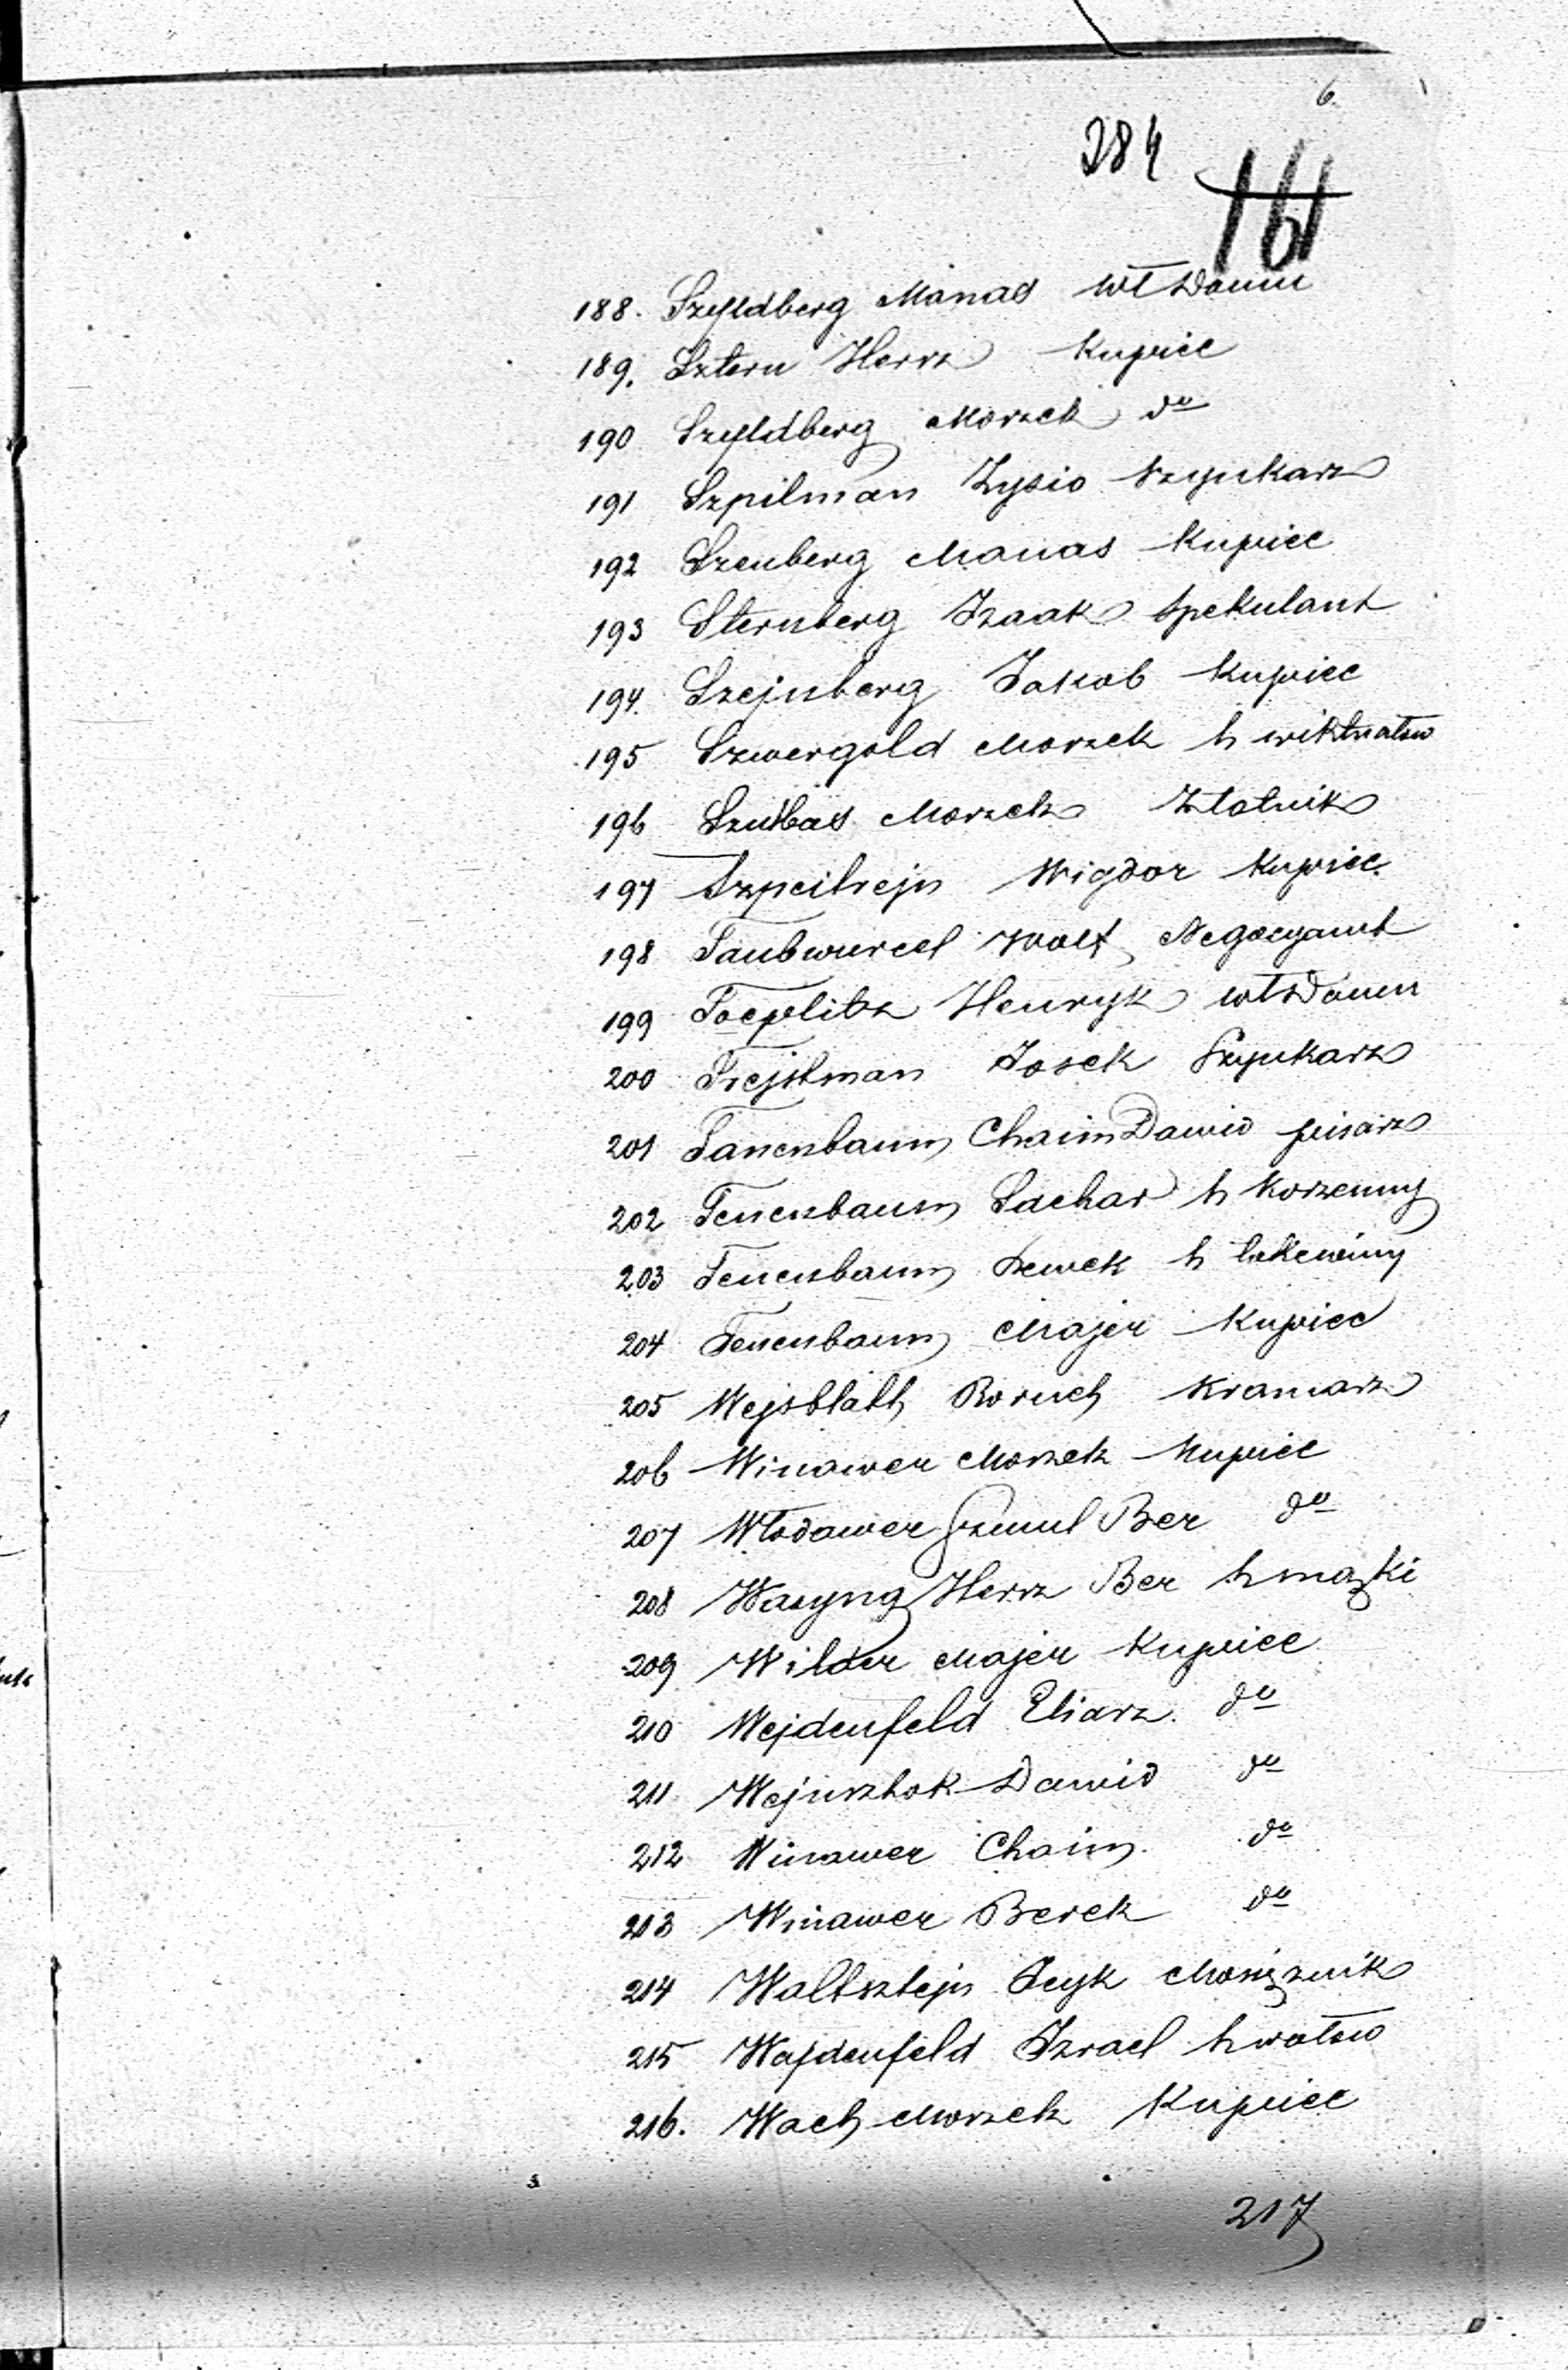 6.
284
161
188. Szyldberg Manas wł Domu
189. Sztern Hersz Kupiec
190 Szyldberg Moszek do
191 Szpilman Zysio Szynkarz
192 Szenberg Manas Kupiec
193 Sternberg Izaak Spekulant
194. Szejnberg Jakob Kupiec
195 Szwergold Moszek h wiktuałów
196 Moszek Złotnik
197 Wigdor Kupiec.
198 Taubwurcel Wolf Negocyant
199 Toeplitz Henryk wł Domu
200 Trejstman Josek Szynkarz
201 Tanenbaum Chaim Dawid pisarz
202 Tenenbaum Sachar h Korzenny
203 Tenenbaum h łokciowy
204 Tenenbaum Majer Kupiec
205 Wejsblatt Boruch Kramarz
206 Winawer Moszek Kupiec
207 Włodawer Szmul Ber do
208 Wasyng Hersz Ber h mąki
209 Wilder Majer Kupiec
210 Wejdenfeld Eliasz. do
211 Wejnsztok Dawid do
212 Winawer Chaim. do
213 Winawer Berek do
214 Waltsztejn Icyk Mosiężnik
215 Wajdenfeld Izrael h wołów
216. Wach Moszek Kupiec
217